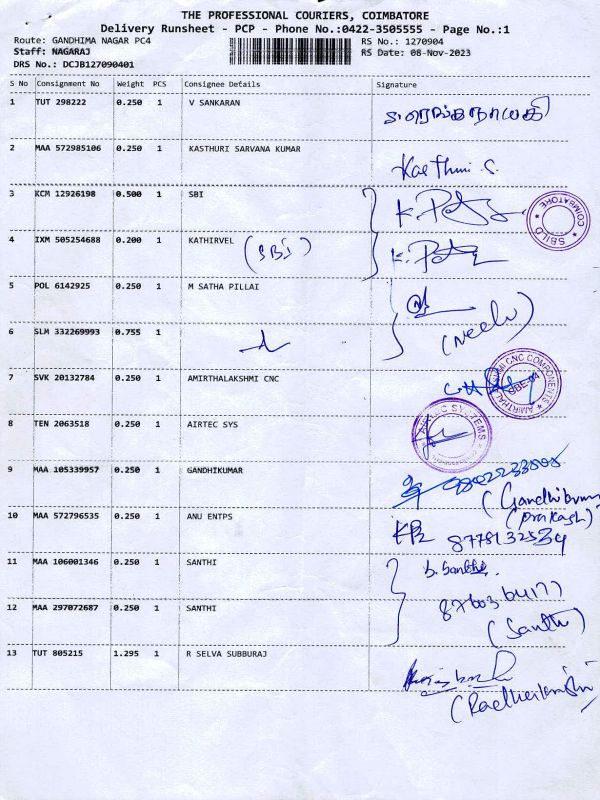 THE PROFESSIONAL COURIERS, COIMBATORE
Delivery Runsheet - PCP - Phone No.:0422-3505555 - Page No.:1
Route: GANDHIMA NAGAR PC4 RS No.: 1270904
Staff: NAGARAJ RS Date: 08-Nov-2023
DRS No.: DCJB127090401
S No Consignment No Weight PCS Consignee Details Signature
1 TUT 298222 0.250 1 V SANKARAN
2 MAA 572985106 0.250 1 KASTHURI SARVANA KUMAR
Kasthuri S.
3 KCM 12926198 0.500 1 SBI
COIMBATORE
SBILD
4 IXM 505254688 0.200 1 KATHIRVEL (SBI)
5 POL 6142925 0.250 1 M SATHA PILLAI
(Neelu)
6 SLM 332269993 0.755 1
7 SVK 20132784 0.250 1 AMIRTHALAKSHMI CNC
CNC COMPONENTS
8 TEN 2063518 0.250 1 AIRTEC SYS
AIRTEC SYSTEMS
9 MAA 105339957 0.250 1 GANDHIKUMAR
(prakash)
10 MAA 572796535 0.250 1 ANU ENTPS
11 MAA 106001346 0.250 1 SANTHI
12 MAA 297072687 0.250 1 SANTHI
(Santhi)
13 TUT 805215 1.295 1 R SELVA SUBBURAJ